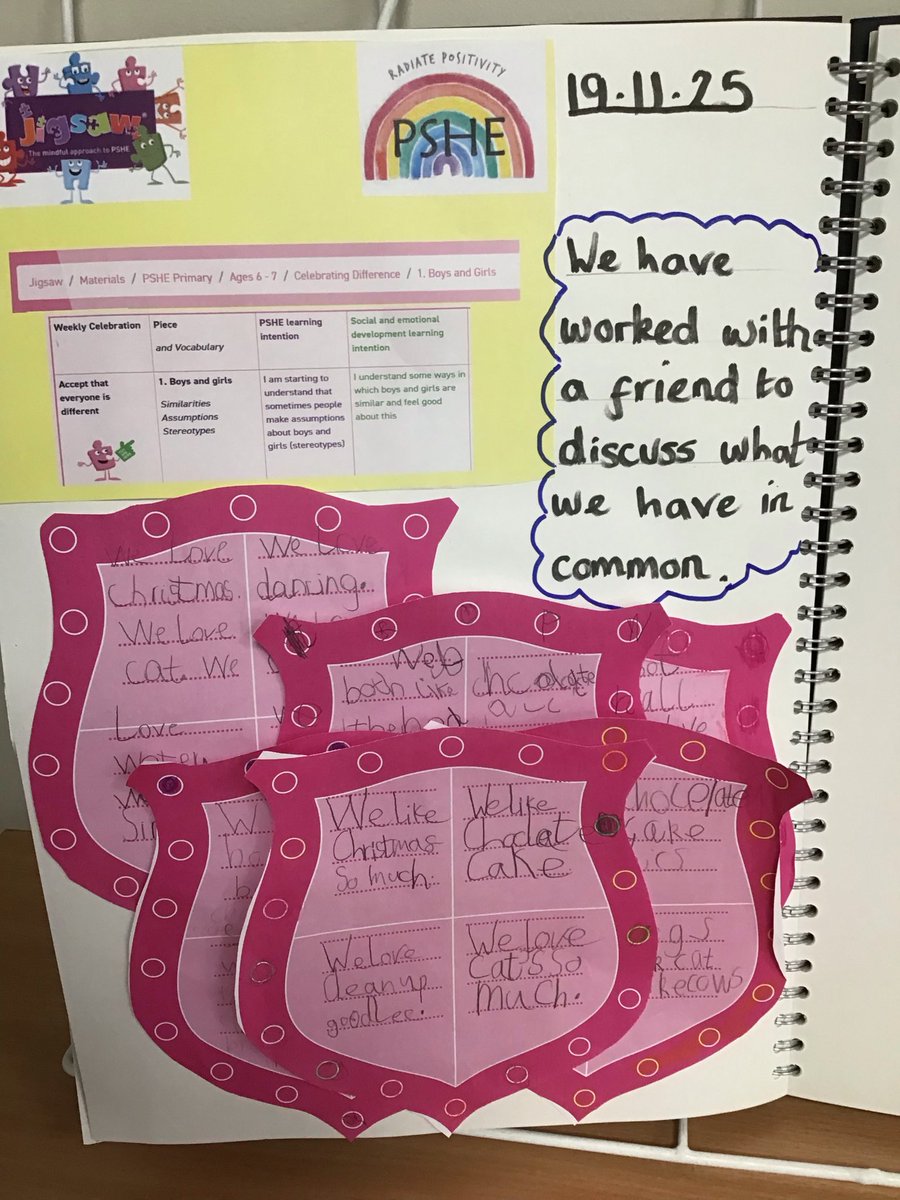 jigsaw
The mindful approach to PSHE
RADIATE POSITIVITY
PSHE
19.11.25
Jigsaw / Materials / PSHE Primary / Ages 6 - 7 / Celebrating Difference / 1. Boys and Girls
Weekly Celebration
Piece
and Vocabulary
PSHE learning
intention
Social and emotional
development learning
intention
Accept that
everyone is
different
1. Boys and girls
Similarities
Assumptions
Stereotypes
I am starting to
understand that
sometimes people
make assumptions
about boys and
girls (stereotypes)
I understand some ways in
which boys and girls are
similar and feel good
about this
We have
worked with
a friend to
discuss what
we have in
common.
We Love
christmas.
We Love
cat. We
We Love
dancing.
Love
both like
chcolate
all
We like
Christmas
So much.
We like
Chcolate
cake.
We love
clean up
goodies.
We love
Cat's so
much.
chocelate
cake
cat